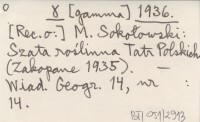 o ɣ [gamma] 1936.
[Rec. o:] M. Sokołowski:
Szata roślinna Tatr Polskich
(Zakopane 1935). —
Wiad. Geogr. 14, nr :
14.